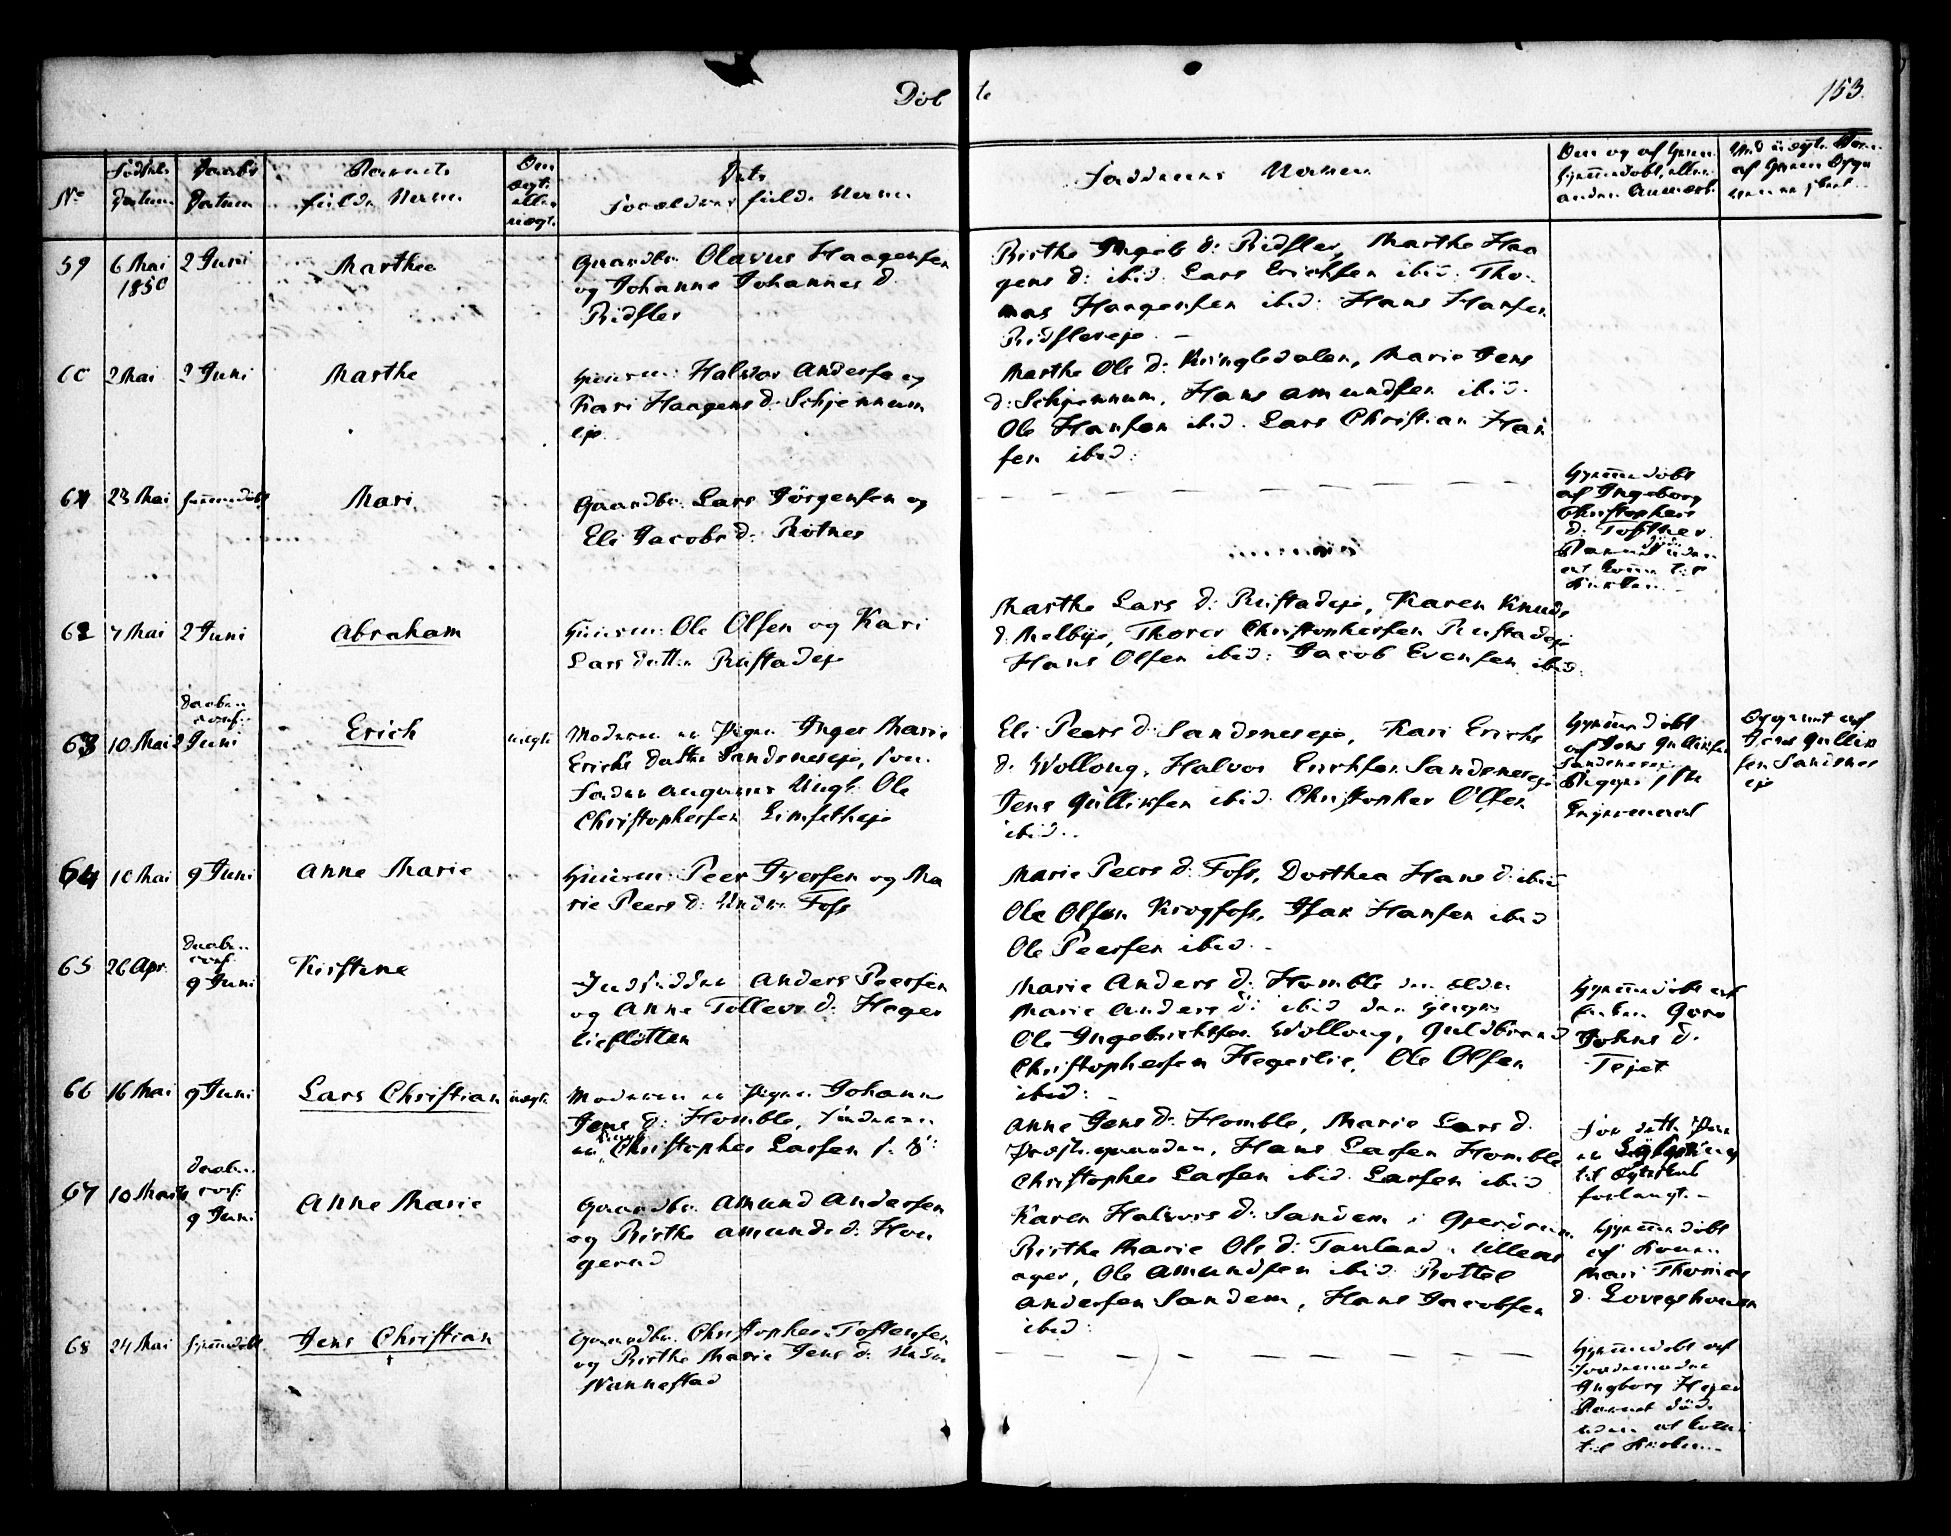 Döbte
153.
No
Fødsels Datum
Daabs Datum
Barnets fulde Navn
Om ægte eller uægte
Dets Forældres fulde Navne
Faddernes Navne
Om og af hvem hjemmedøbt, eller anden Anmærk.
59
6 Mai 1850
2 Juni
Marthea
Gaardbr. Olavus Haagensen
og Johanne Johannes d.
Ridsler
Birthe Ingels d: Ridsler, Marthe Haa
gens d: ibid. Lars Erichsen ibid: Tho
mas Haagensen ibid: Hans Hansen
Ridslereje. —
60
2 Mai
2 Juni
Marthe
Huusm: Halvor Anderse og
Kari Haagens d: Schjennum
eje.
Marthe Ole d: Kringledalen, Marie Jens
d: Schjennum, Hans Amundsen ibid.
Ole Hansen ibid. Lars Christian Han
sen ibid:
61
23 Mai
hjemmedöbt
Mari
Gaardbr. Lars Jörgensen og
Eli Jacobs d: Rotnes
Hjemmedöbt
af Ingeborg
Christophers
d:
Barnet döde uden
at komme til
Kirken
62
7 Mai
2 Juni
Abraham
Huusm: Ole Olsen og Kari
Lars datter Rustadeje
Marthe Lars d: Rustadeje, Karen Knuds
d. Melbye, Thorer Christophersen Rustadeje
Hans Olsen ibid: Jacob Evensen ibid.
63
10 Mai
Daaben conf: 2 Juni
Erich
uægte
Moderen er Pigen Inger Marie
Erichs datter Sandsneseje, som
Fader angives Ungk. Ole
Christophersen Limsetheje
Eli Peers d: Sandsneseje, Kari Erichs
d. Wollong, Halvor Erichsen Sandsneseje
Jens Gullixsen ibid. Christopher Olsen
ibid..
Hjemmedöbt
af Jens Gullixsen
Sandsneseje
Opgivet af
Jens Gullix
sen Sandsnes
eje
64
10 Mai
9 Juni
Anne Marie
Huusm: Peer Iversen og Ma
rie Peers d: Under Foss
Marie Peers d: Foss, Dorthea Hans d: ibid
Ole Olsen Krogfoss, Isak Hansen ibid
Ole Peersen ibid. -
65
26 Apr.
Daaben conf. 9 Juni
Kirstene
Indsidder Anders Peersen
og Anne Tollevs d: Heger
lieflötten
Marie Anders d: Homble den ældre
Marie Anders d: ibid den yngre
Ole Ingebrichtsen Wollong, Guldbrand
Christophersen Hegerlie, Ole Olsen
ibid:
Hjemmedöbt af
Enken Goro
Johns d.
Tejet
66
16 Mai
9 Juni
Lars Christian
uægte
Moderen er Pigen Johanne
Jens d: Homble, Faderen
er Christopher Larsen
Anne Jens d: Homble, Marie Lars d.
Præstegaarden, Hans Larsen Homble
Christopher Larsen ibid. Larsen ibid
For dette
er
til
forlangt. —
67
10 Marts
Daaben conf: 9 Juni
Anne Marie
Gaardbr. Amund Andersen
og Birthe Amunds d. Hou
gerud
Karen Halvors d: Sandem i Gjerdrum
Birthe Marie Ols d: Tomland i Ullens
ager, Ole Amundsen ibid. Bottel
Andersen Sandem, Hans Jacobsen
ibid:
Hjemmedöbt
af Konen
Mari Thomas
d. Lovegshouen
68
24 Mai
hjemmedöbt
Jens Christian
†
Gaardbr. Christopher Tostensen
og Birthe Marie Jens d: Under
Wannestad
Hjemmedöbt af
Jordemoder
Ingborg
Barnet döde
uden at komme
til Kirken